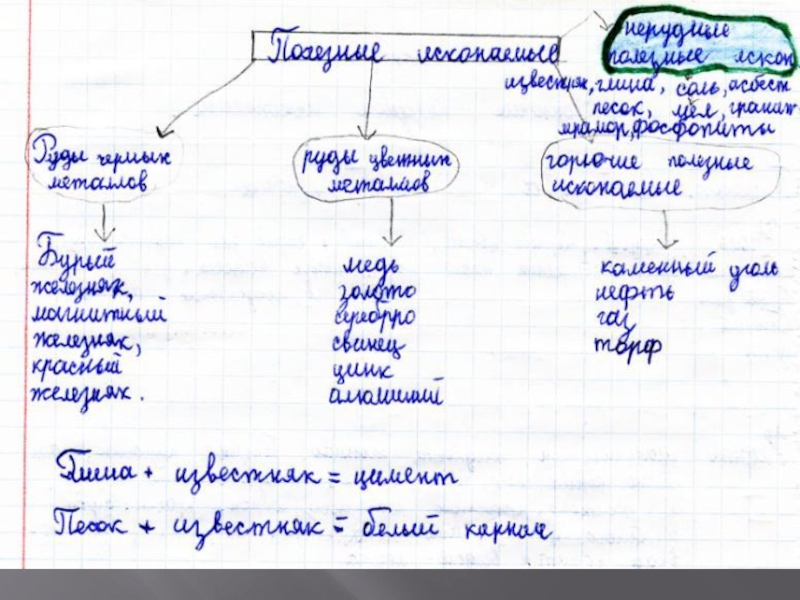 Полезные ископаемые
нерудные
полезные ископ
известняк, глина, соль, асбест
песок, мел, гранит
мрамор, фосфориты
Руды черных
металлов
руды цветных
металлов
горючие полезные
ископаемые
Бурый
железняк,
магнитный
железняк,
красный
железняк.
медь
золото
серебро
свинец
цинк
алюминий
каменный уголь
нефть
газ
торф
Глина + известняк = цимент
Песок + известняк = белый